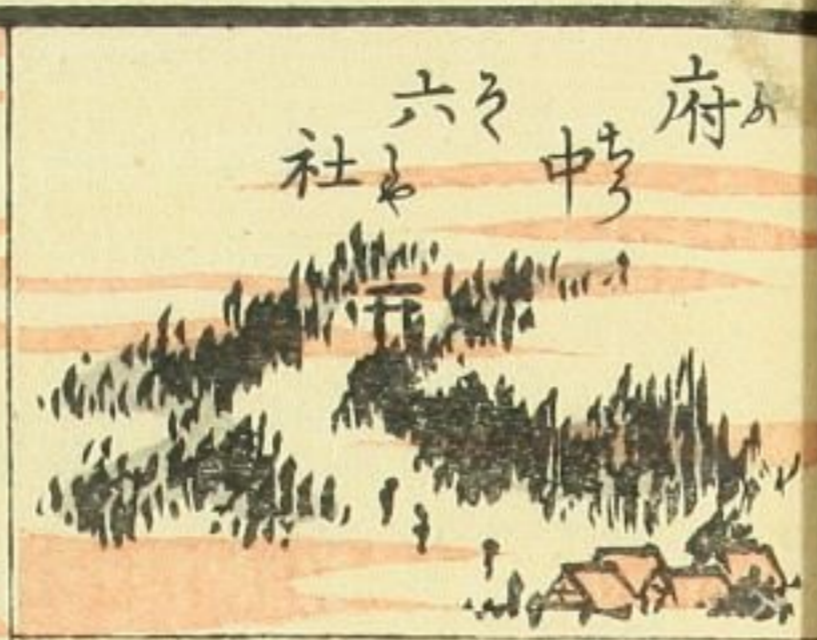 府中
ふちう
六社
ろくしや